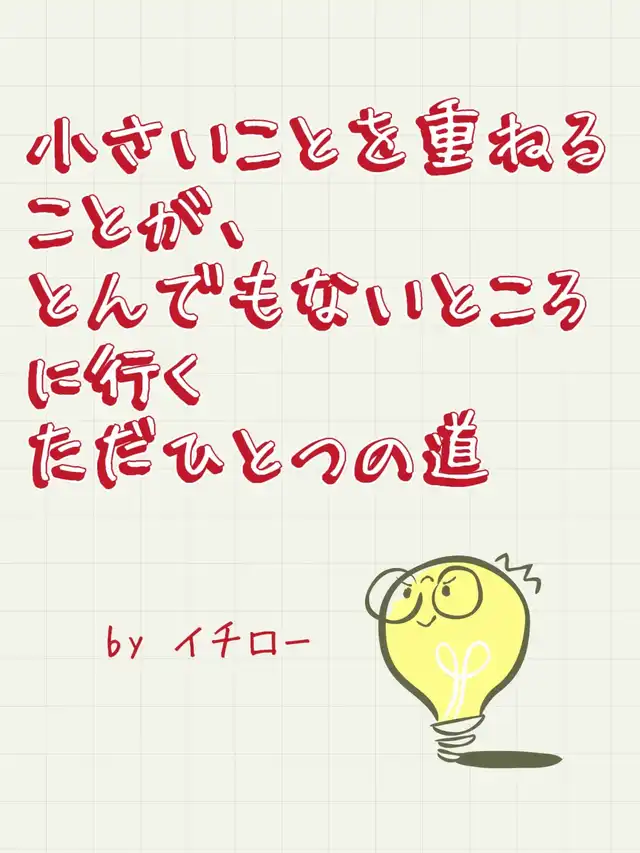 小さいことを重ねる
ことが、
とんでもないところ
に行く
ただひとつの道
by イチロー